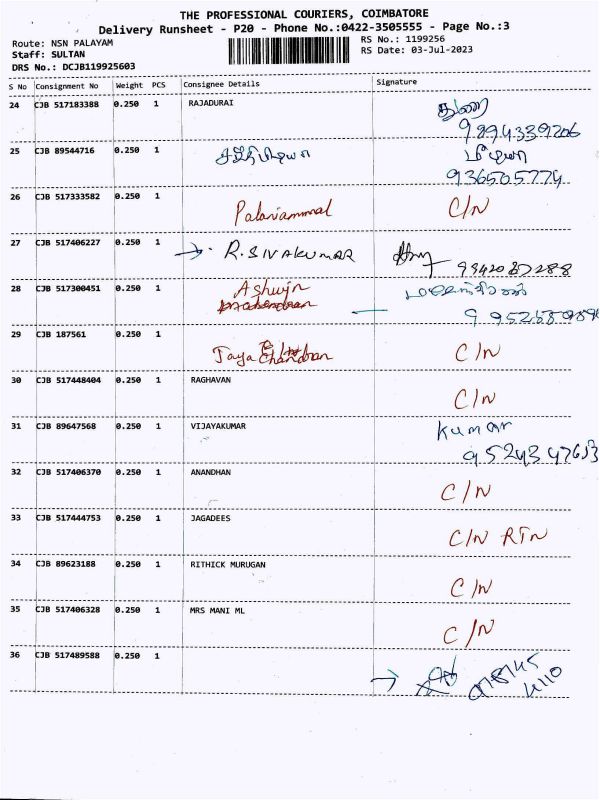 THE PROFESSIONAL COURIERS, COIMBATORE
Delivery Runsheet - P20 - Phone No.:0422-3505555 - Page No.:3
Route: NSN PALAYAM
RS No.: 1199256
Staff: SULTAN
RS Date: 03-Jul-2023
DRS No.: DCJB119925603
S No Consignment No Weight PCS Consignee Details Signature
24 CJB 517183388 0.250 1 RAJADURAI
9894339206
25 CJB 89544716 0.250 1
9365057774
26 CJB 517333582 0.250 1
Palaniammal C/N
27 CJB 517406227 0.250 1
R. SIVAKUMAR
28 CJB 517300451 0.250 1 Ashwin
29 CJB 187561 0.250 1
Jaya Chandran C/N
30 CJB 517448404 0.250 1 RAGHAVAN
C/N
31 CJB 89647568 0.250 1 VIJAYAKUMAR Kumar
32 CJB 517406370 0.250 1 ANANDHAN
C/N
33 CJB 517444753 0.250 1 JAGADEES
C/N RTN
34 CJB 89623188 0.250 1 RITHICK MURUGAN
C/N
35 CJB 517406328 0.250 1 MRS MANI ML
C/N
36 CJB 517489588 0.250 1